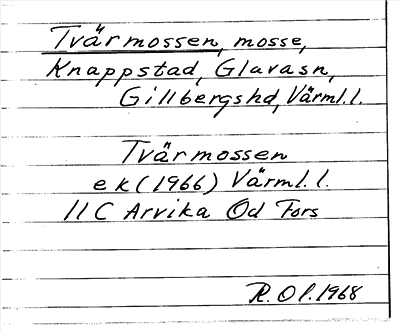 Tvärmossen, mosse,
Knappstad, Glavasn,
Gillbergshd, Värml.l.
Tvärmossen
ek (1966) Värml.l.
11 C Arvika Öd Fors
R.Ol.1968